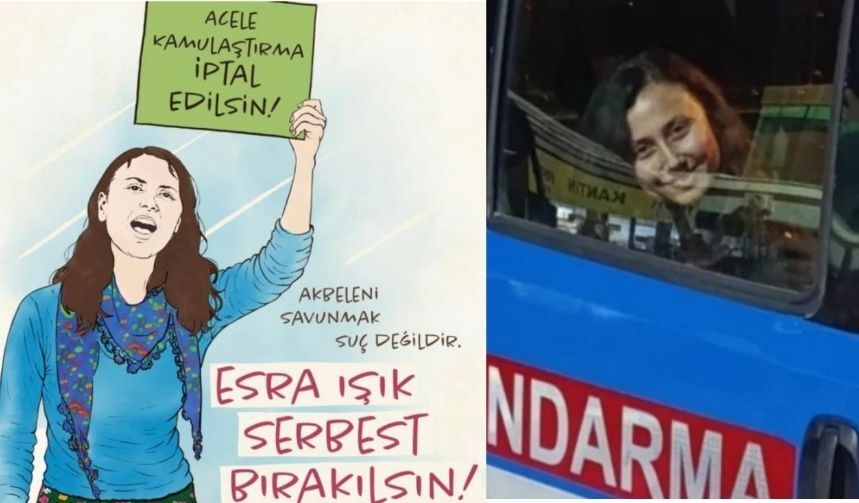 ACELE
KAMULAŞTIRMA
İPTAL
EDİLSİN!
AKBELENİ
SAVUNMAK
SUÇ DEĞİLDİR.
ESRA IŞIK
SERBEST
BIRAKILSIN!
KANTİN
NDARMA